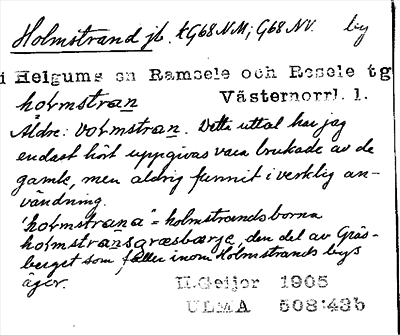 Holmstrand jb. tG68NM; G68NV. by
i Helgums sn Ramsele och Resele tg
hoɽmstran Västernorrl. l.
Äldre: voɽmstran. Detta uttal har jag
endast hört uppgivas vara brukade av de
gamle, men aldrig funnit i verklig an-
vändning.
"hoɽmstrana" = holmstrandsborna
hoɽmstransgræsbærje, den del av Gräs-
berget som faller inom Holmstrands bys
ägor.
H.Geijer 1905
ULMA 508:43b